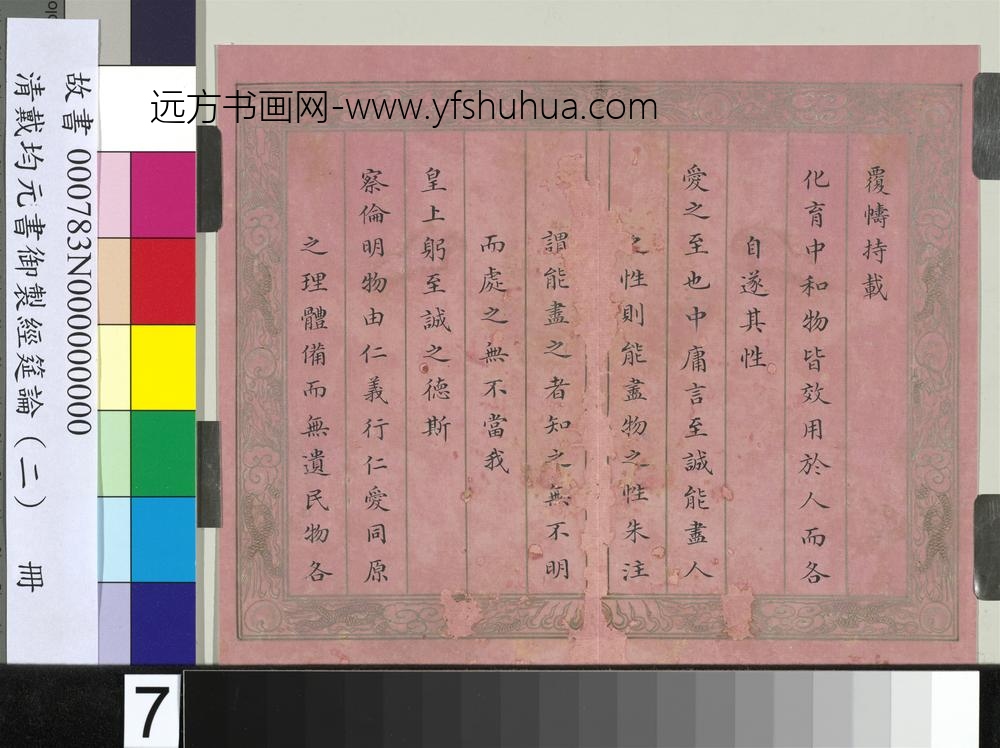 远方书画网-www.yfshuhua.com
故書 000783N000000000
清戴均元書御製經筵論（二） 冊
覆幬持載
化育中和物皆效用於人而各
自遂其性
愛之至也中庸言至誠能盡人
之性則能盡物之性朱注
謂能盡之者知之無不明
而處之無不當我
皇上躬至誠之德斯
察倫明物由仁義行仁愛同原
之理體備而無遺民物各
7